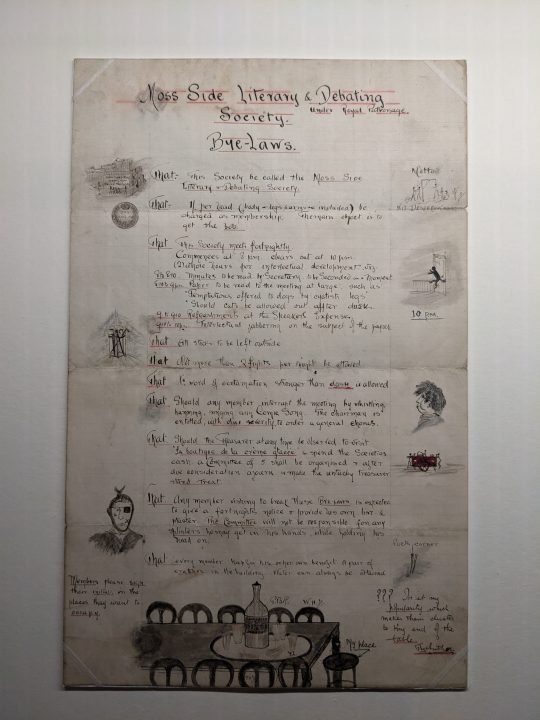 Moss Side Literary & Debating
Society.
Under Royal Patronage.
Bye-Laws.
That:- This Society be called the Moss Side
Literary & Debating Society.
That- If per head (body & legs included) be
charged as membership. The main object is to
get the
That This Society meets fortnightly
Commences at 8 p.m. clears out at 10 p.m.
(2) whole hours for intellectual development viz
Minutes to be read by Secretary to be Seconded in a moment
Papers to be read to the meeting at large such as
"Temptations offered to dogs by cyclists legs
"Should cats be allowed out after dusk.
Refreshments at the Speakers Expense.
Intellectual jabbering on the subject of the paper
10 P.M.
That all sticks to be left outside
That Not more than 2 fights per night be allowed
That No word of exclamation stronger than is allowed
That Should any member interrupt the meeting by whistling
humming, singing any Comic Song. The chairman is
entitled, with due severity to order a general chorus.
That Should the Treasurer at any time be observed to visit
"La boutique de la crême glacée" & spend the Societies
cash a Committee of 5 shall be organised & after
due consideration adjourn & make the untrusty treasurer
stand treat.
That Any member wishing to break these Bye Laws is expected
to give a fortnight's notice & provide his own lint &
plaster. The Committee will not be responsible for any
splinters he may get in his hands while holding his
head on.
Poets corner
That every member has for his or her own benefit a pair of
in the building. Their own always be allowed
Members please sign
their initials on the
places they want to
occupy.
My place
??? Is it my
popularity which
makes them
to tiny end of the
table.